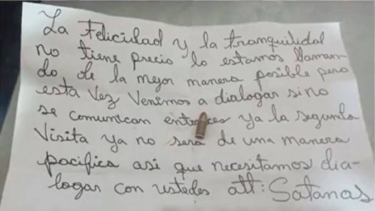 La Felicidad y la tranquilidad
no tiene precio lo estamos llaman
do de la mejor manera posible pero
esta vez venimos a dialogar si no
se comunican entonces ya la segunda
visita ya no será de una manera
pacifica asi que necesitamos dia-
logar con ustedes att: Satanas